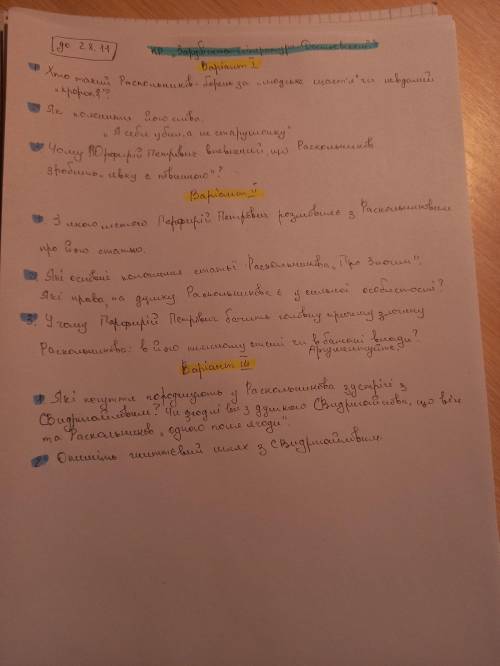 до 28.11
КР "Зарубіжна література Достоєвський"
Варіант I
1 Хто такий Раскольніков - борець за "людське щастя" чи невдалий
"пророк"?
2 Як пояснити його слова
"Я себя убил, а не старушонку"
3 Чому Порфирій Петрович впевнений, що Раскольніков
зробить "явку с повинною"?
Варіант II
1 З якою метою Порфирій Петрович розмовляє з Раскольніковим
про його статтю.
2. Які основні положення статті Раскольнікова "Про злочин".
Які права, на думку Раскольнікова є у сильної особистості?
3. У чому Порфирій Петрович бачить головну причину злочину
Раскольнікова: в його тяжкому стані чи в бажанні влади?
Аргументуйте
Варіант III
1 Які почуття породжують у Раскольнікова зустрічі з
Свидригайловим? Чи згодні ви з думкою Свидригайлова, що він
та Раскольніков "одного поля ягоди".
2. Опишіть життєвий шлях з Свидригайловим.